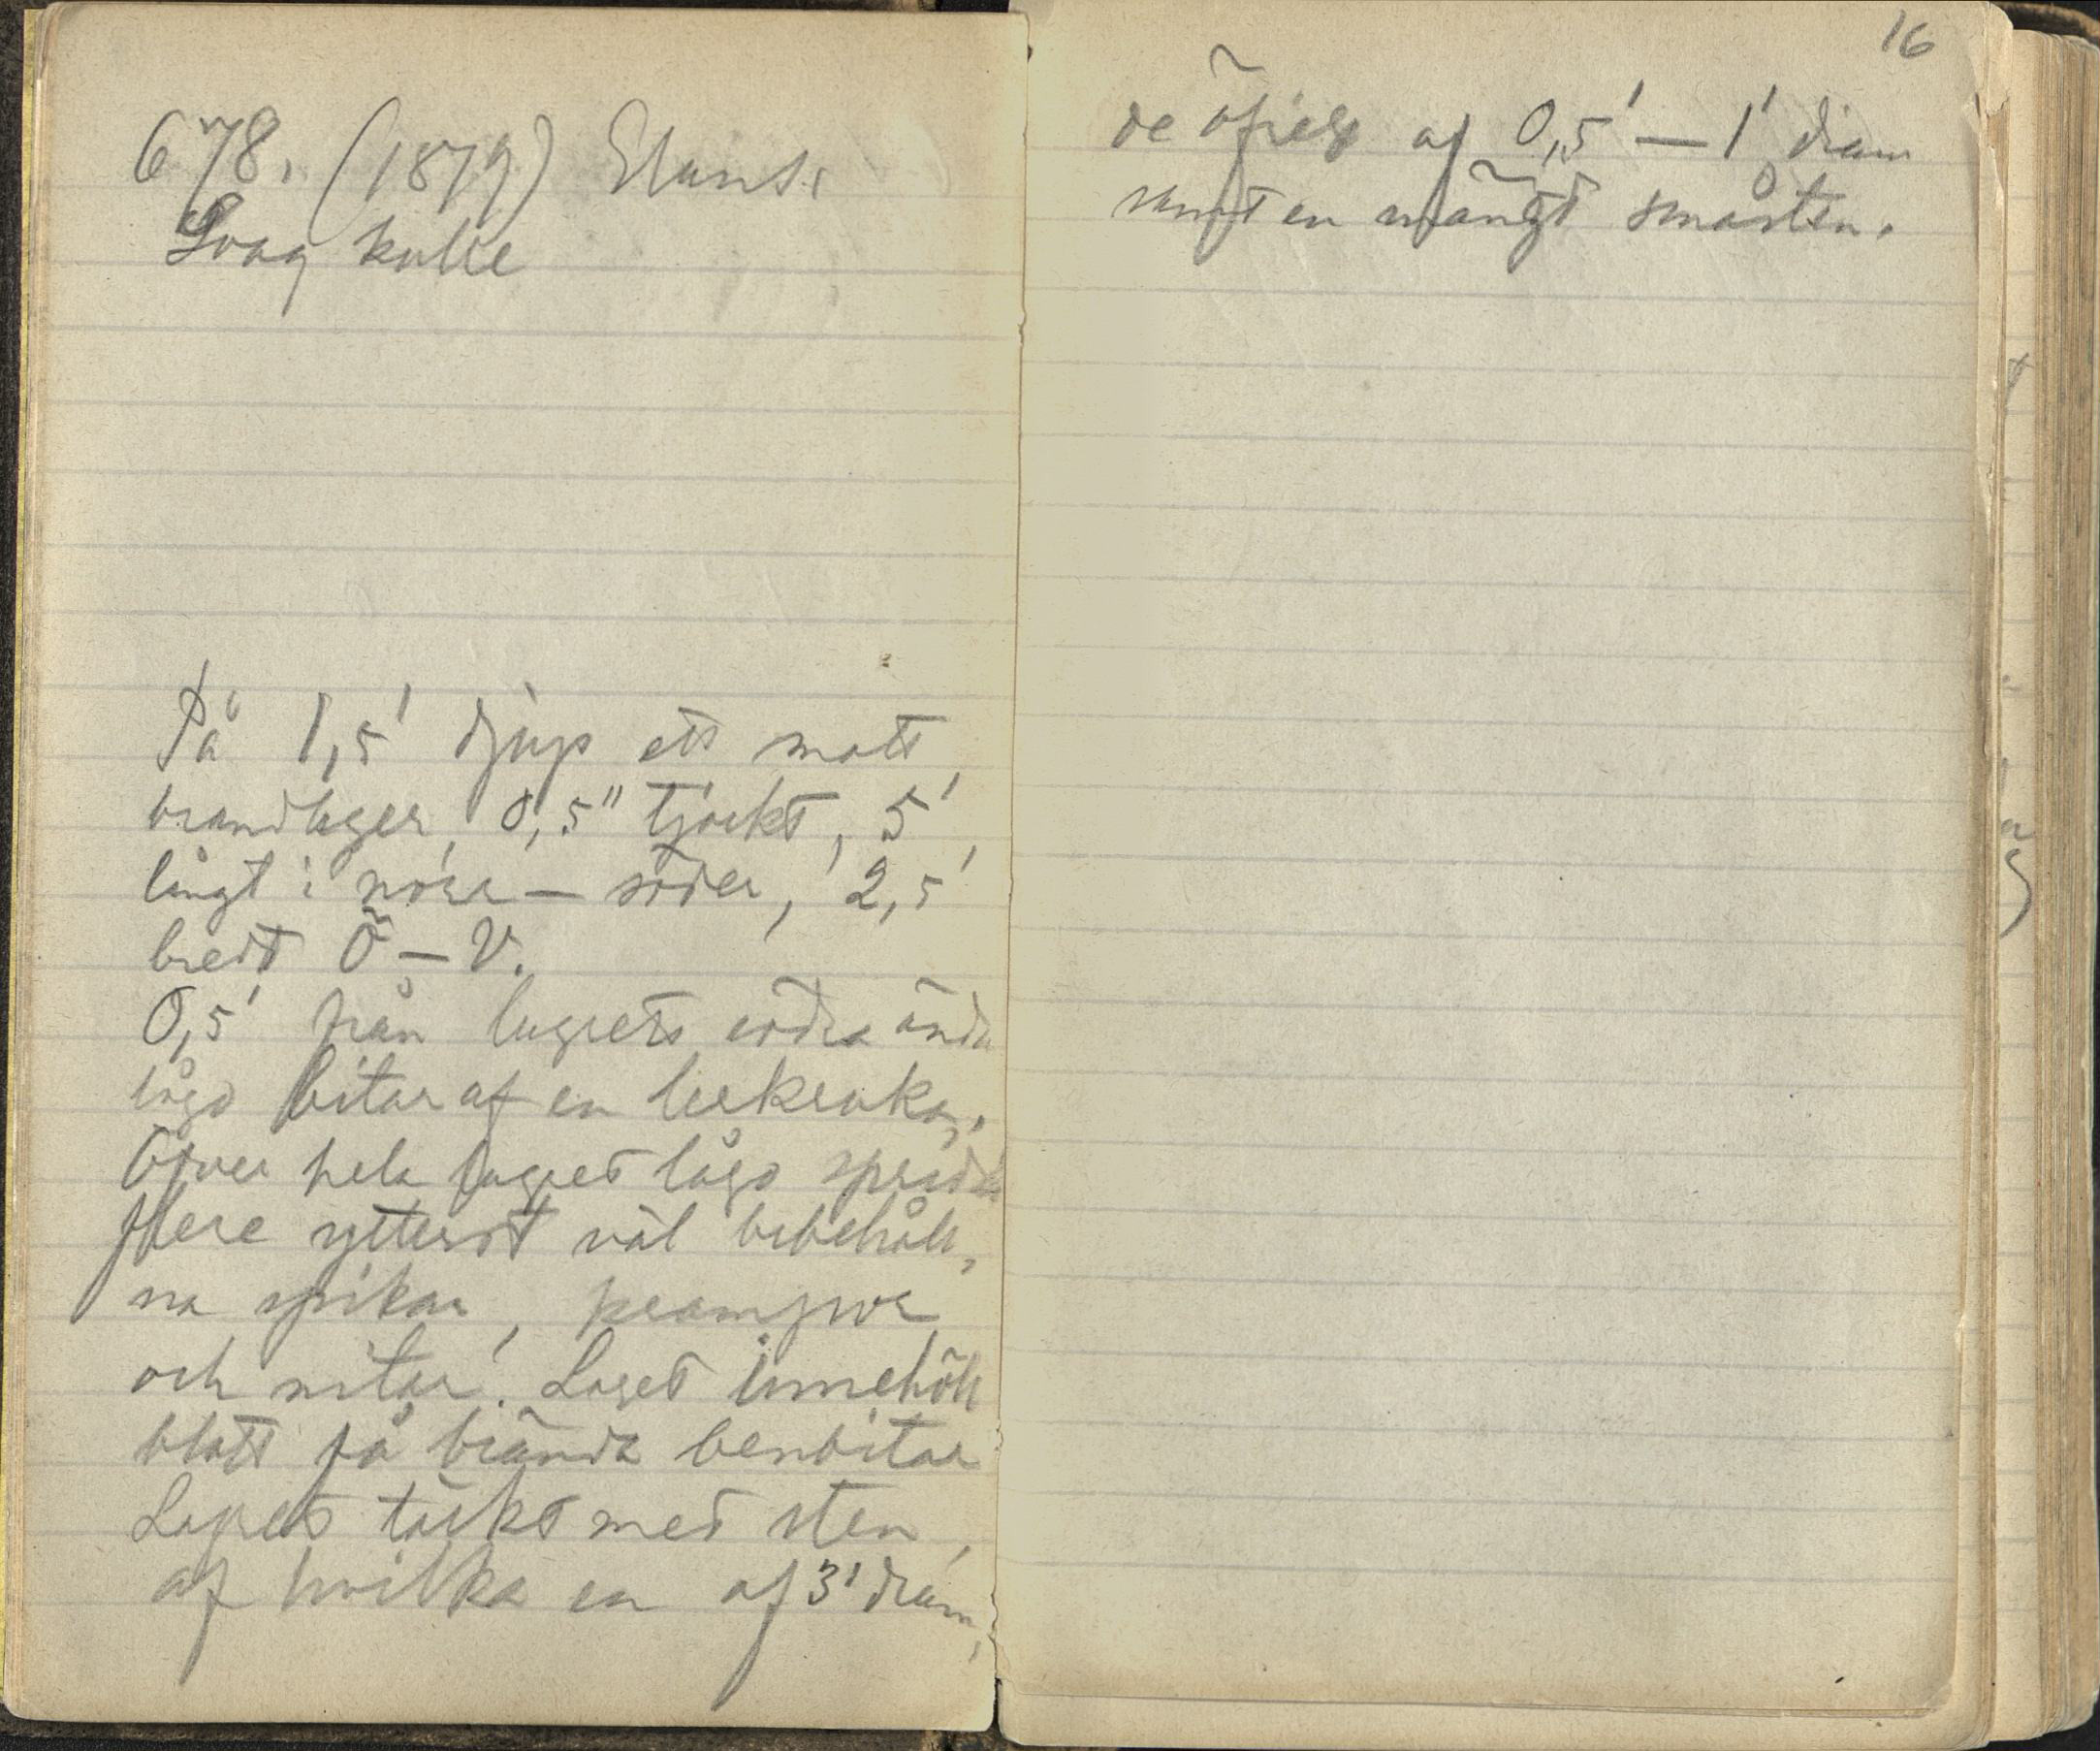 678. (1879)
Svag kulle
På 1,5' djup ett matt
brandlager, 0,5" tjockt, 5'
långt i norr — söder, 2,5'
bredt Ö — V.
0,5' från lagrets södra ända
lågo bitar af en lerkruka.
Öfver hela lagret lågo spridda
flere ytterst väl bibehåll-
na spikar, krampor
och nitar. Lagret innehöll
blott få brända benbitar
Lagret täckt med sten,
af hvilka en af 3' diam,
16
de öfriga af 0,5' — 1' diam
samt en mängd småsten.